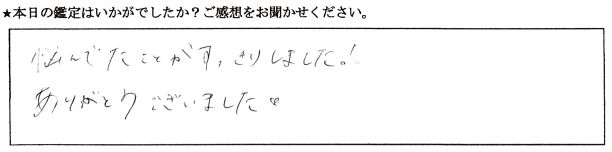 ★本日の鑑定はいかがでしたか？ご感想をお聞かせください。
悩んでたことがすっきりしました!
ありがとうございました♥